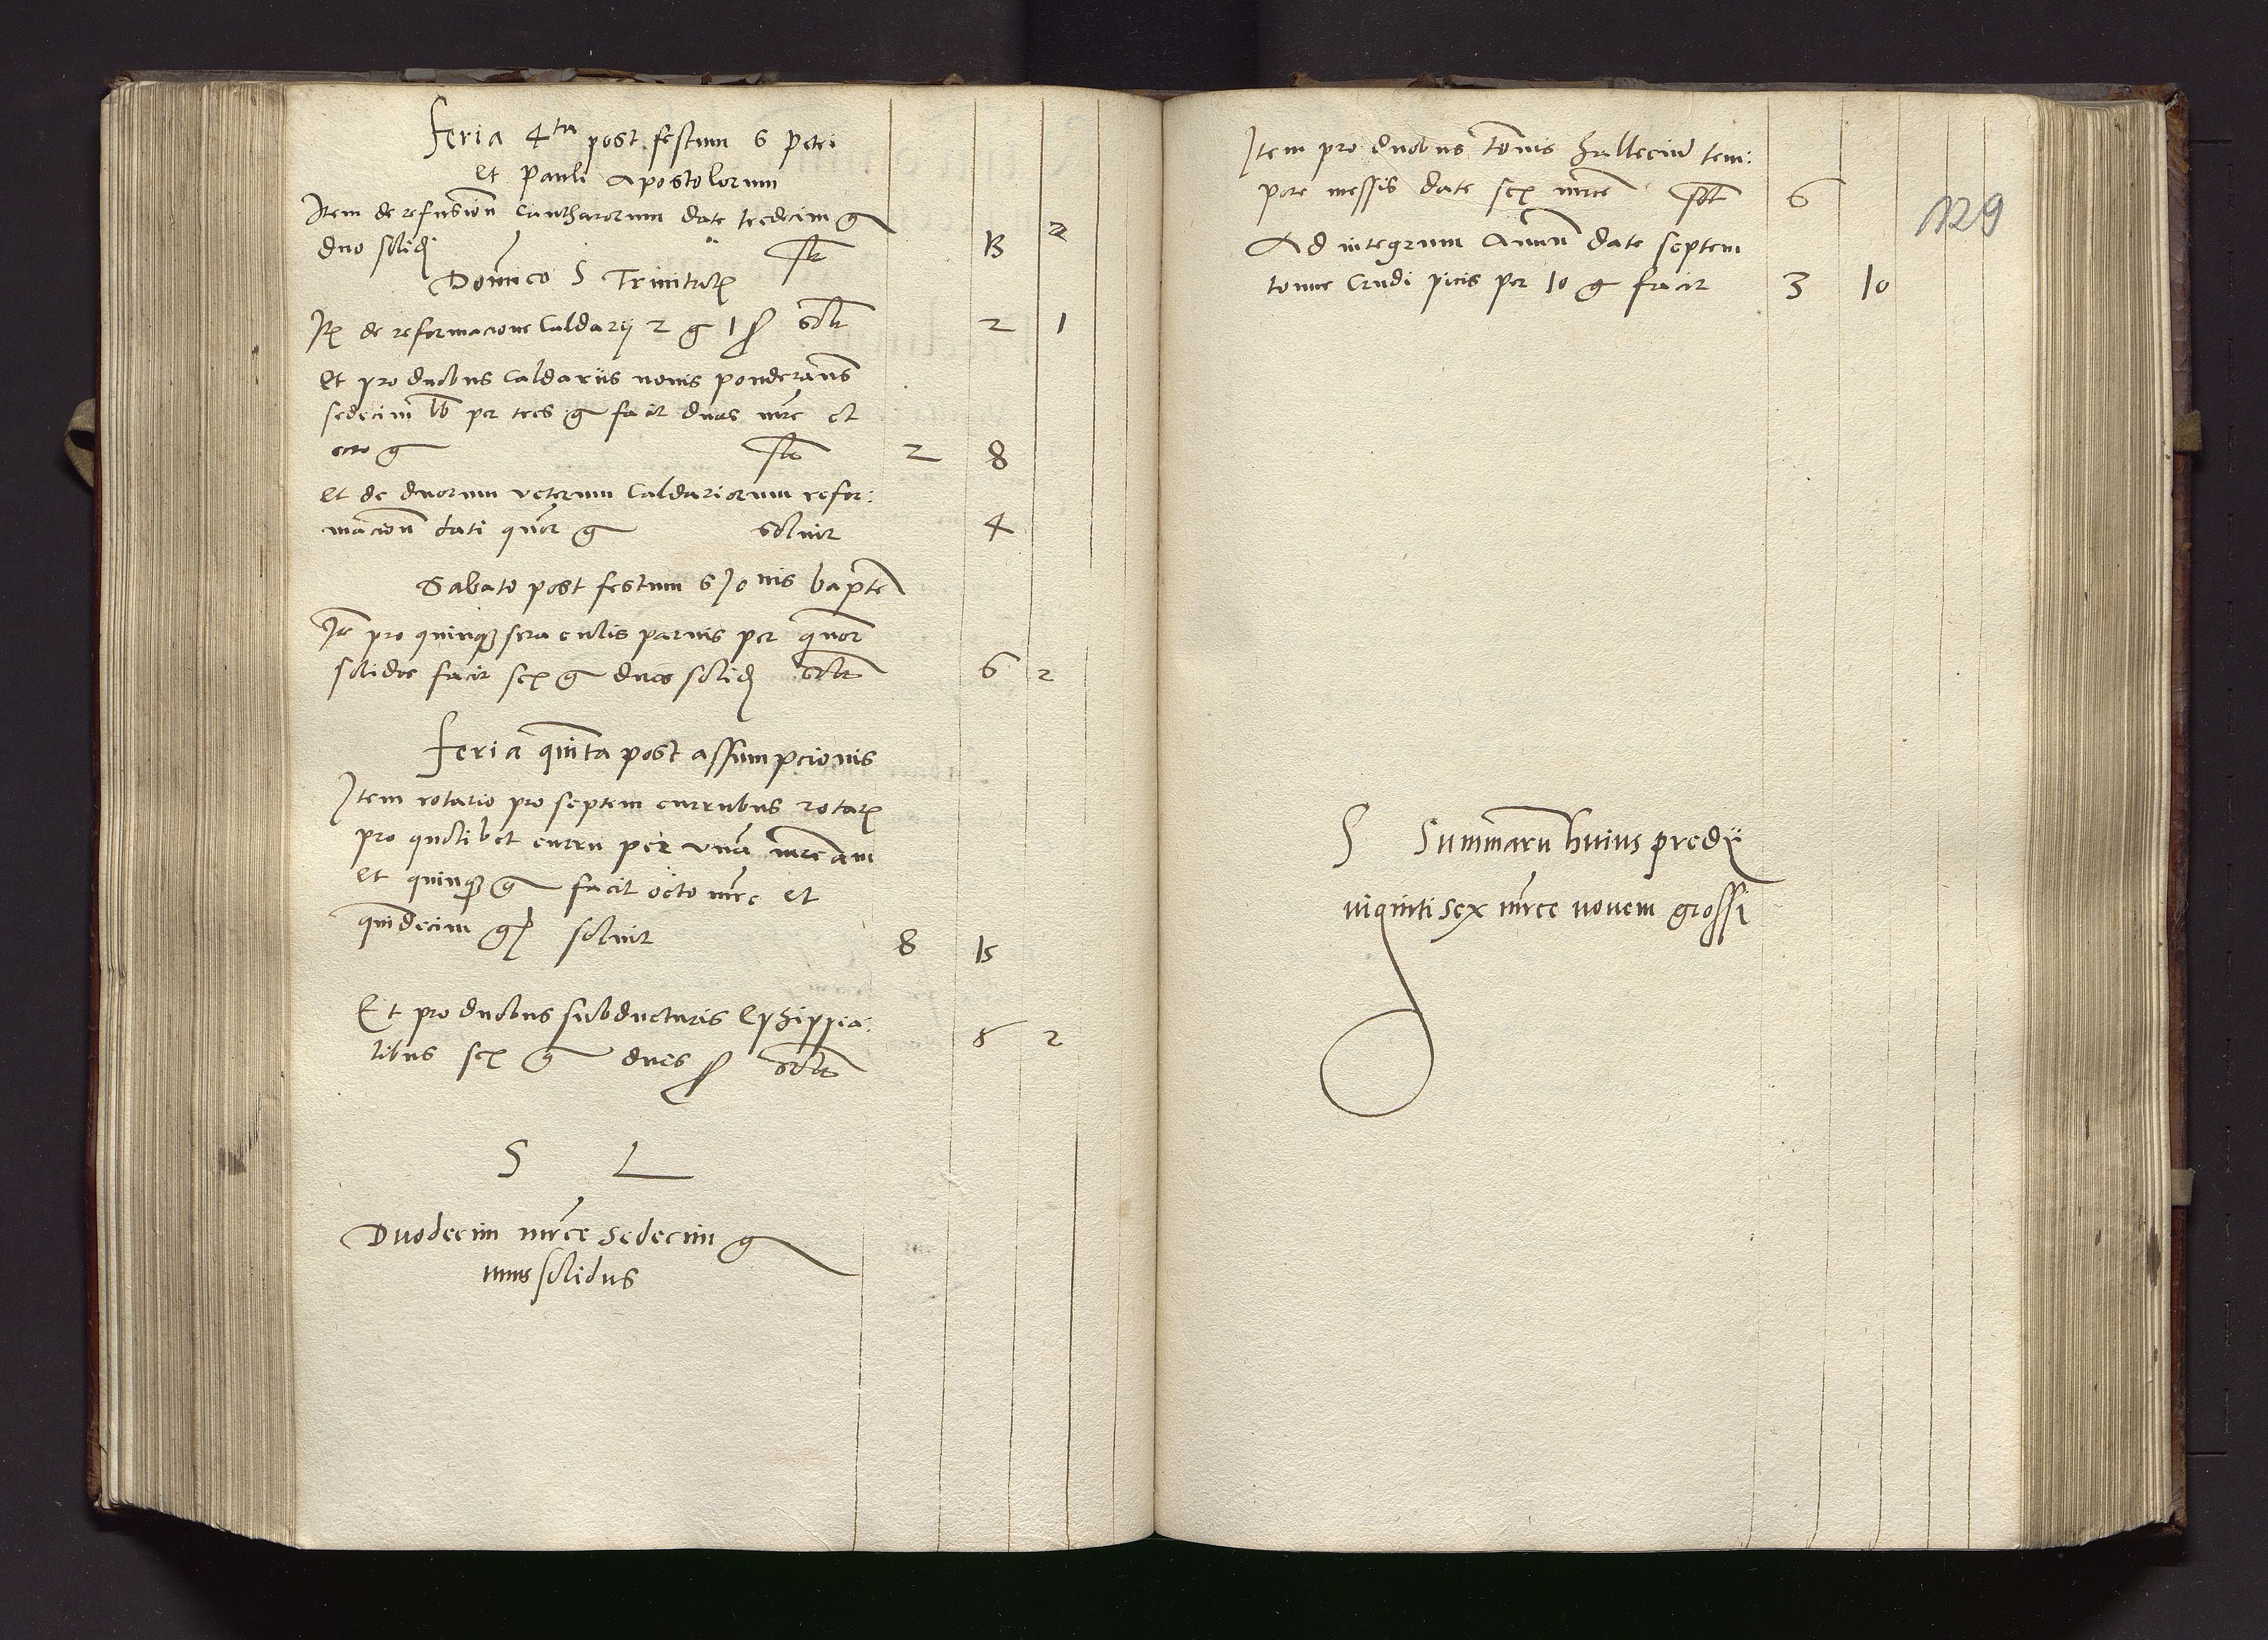 feria 4ta post festum S Petri
et Pauli Apostolorum
Item de refusion Cantharorum date tredecim g
duo solid facit 13 2
Dominico S Trinitatis
It de reformacione Caldarij 2 g 1 ß solt 2 1
et pro duobus Caldariis novis ponderans
sedecim lb per tres g facit duas mrc et
octo g fct 2 8
et de duorum veterum Caldariorum refor:
macion dati quor g solvit 4
Sabato post festum S Jonis bapte
It pro quinq seraculis parvis per quor
solidos facit sex g duos solid solt 6 2
feria quinta post assumpcionis
Item rotario pro septem curribus rotar
pro quolibet curru per una mrcam
et quinq g facit octo mrc et
quindecim g solvit 8 15
Et pro duobus subducturis Ephippia:
libus sex g duos ß solt 6 2
S L
Duodecim mrce sedecim g
unus solidus
Item pro duobus tonnis hallecium tem:
pore messis date sex mrce solt 6
129
Ad integrum Annu date septem
tonne Crudi picis per 10 g facit 3 10
S Summaru huius predii
viginti sex mrce novem grossi